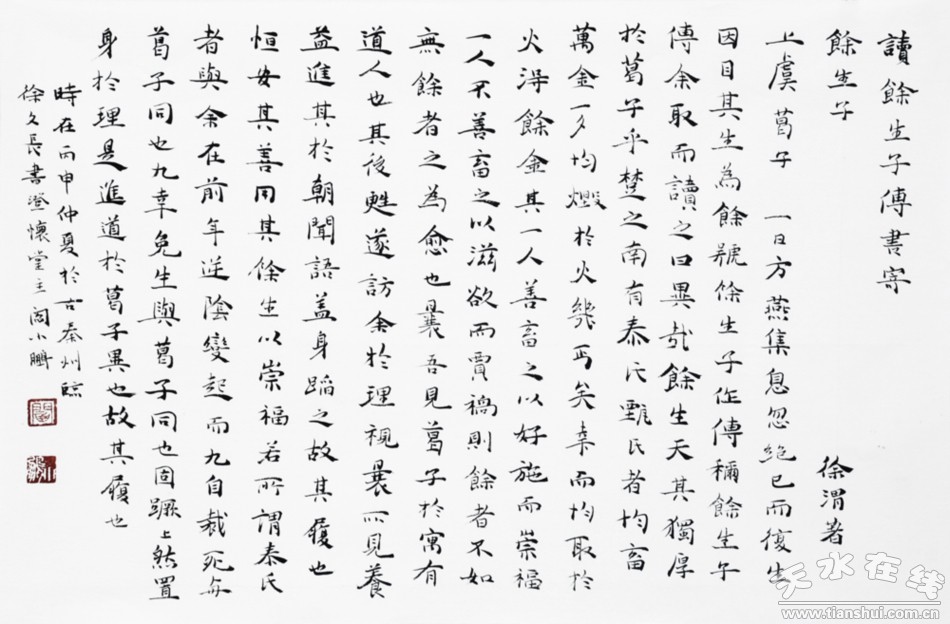 讀餘生子傳書寄
餘生子
徐渭著
上虞葛子一日方燕集息忽絕已而復生
因目其生為餘號餘生子作傳稱餘生子
傳余取而讀之曰異哉餘生天其獨厚
於葛子乎楚之南有泰氏甄氏者均畜
萬金一夕均燬於火幾丐矣幸而均取於
火得餘金其一人善畜之以好施而崇福
一人不善畜之以滋欲而賈禍則餘者不如
無餘者之為愈也曩吾見葛子於寓有
道人也其後甦遂訪余於理視曩所見養
益進其於朝聞語蓋身蹈之故其履也
恒安其善用其餘生以崇福若所謂泰氏
者與余在前年逆陰變起而九自裁死每
葛子同也九幸免生與葛子同也固蹶上然置
身於理是進道於葛子異也故其履也
時在丙申仲夏於古秦州
徐文長書澄懷堂主閻小鵬
天水在线
www.tianshui.com.cn